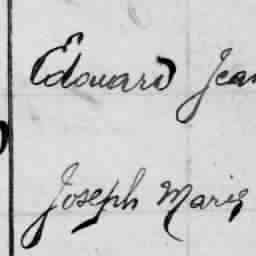 Edouard Jean
Joseph Marie